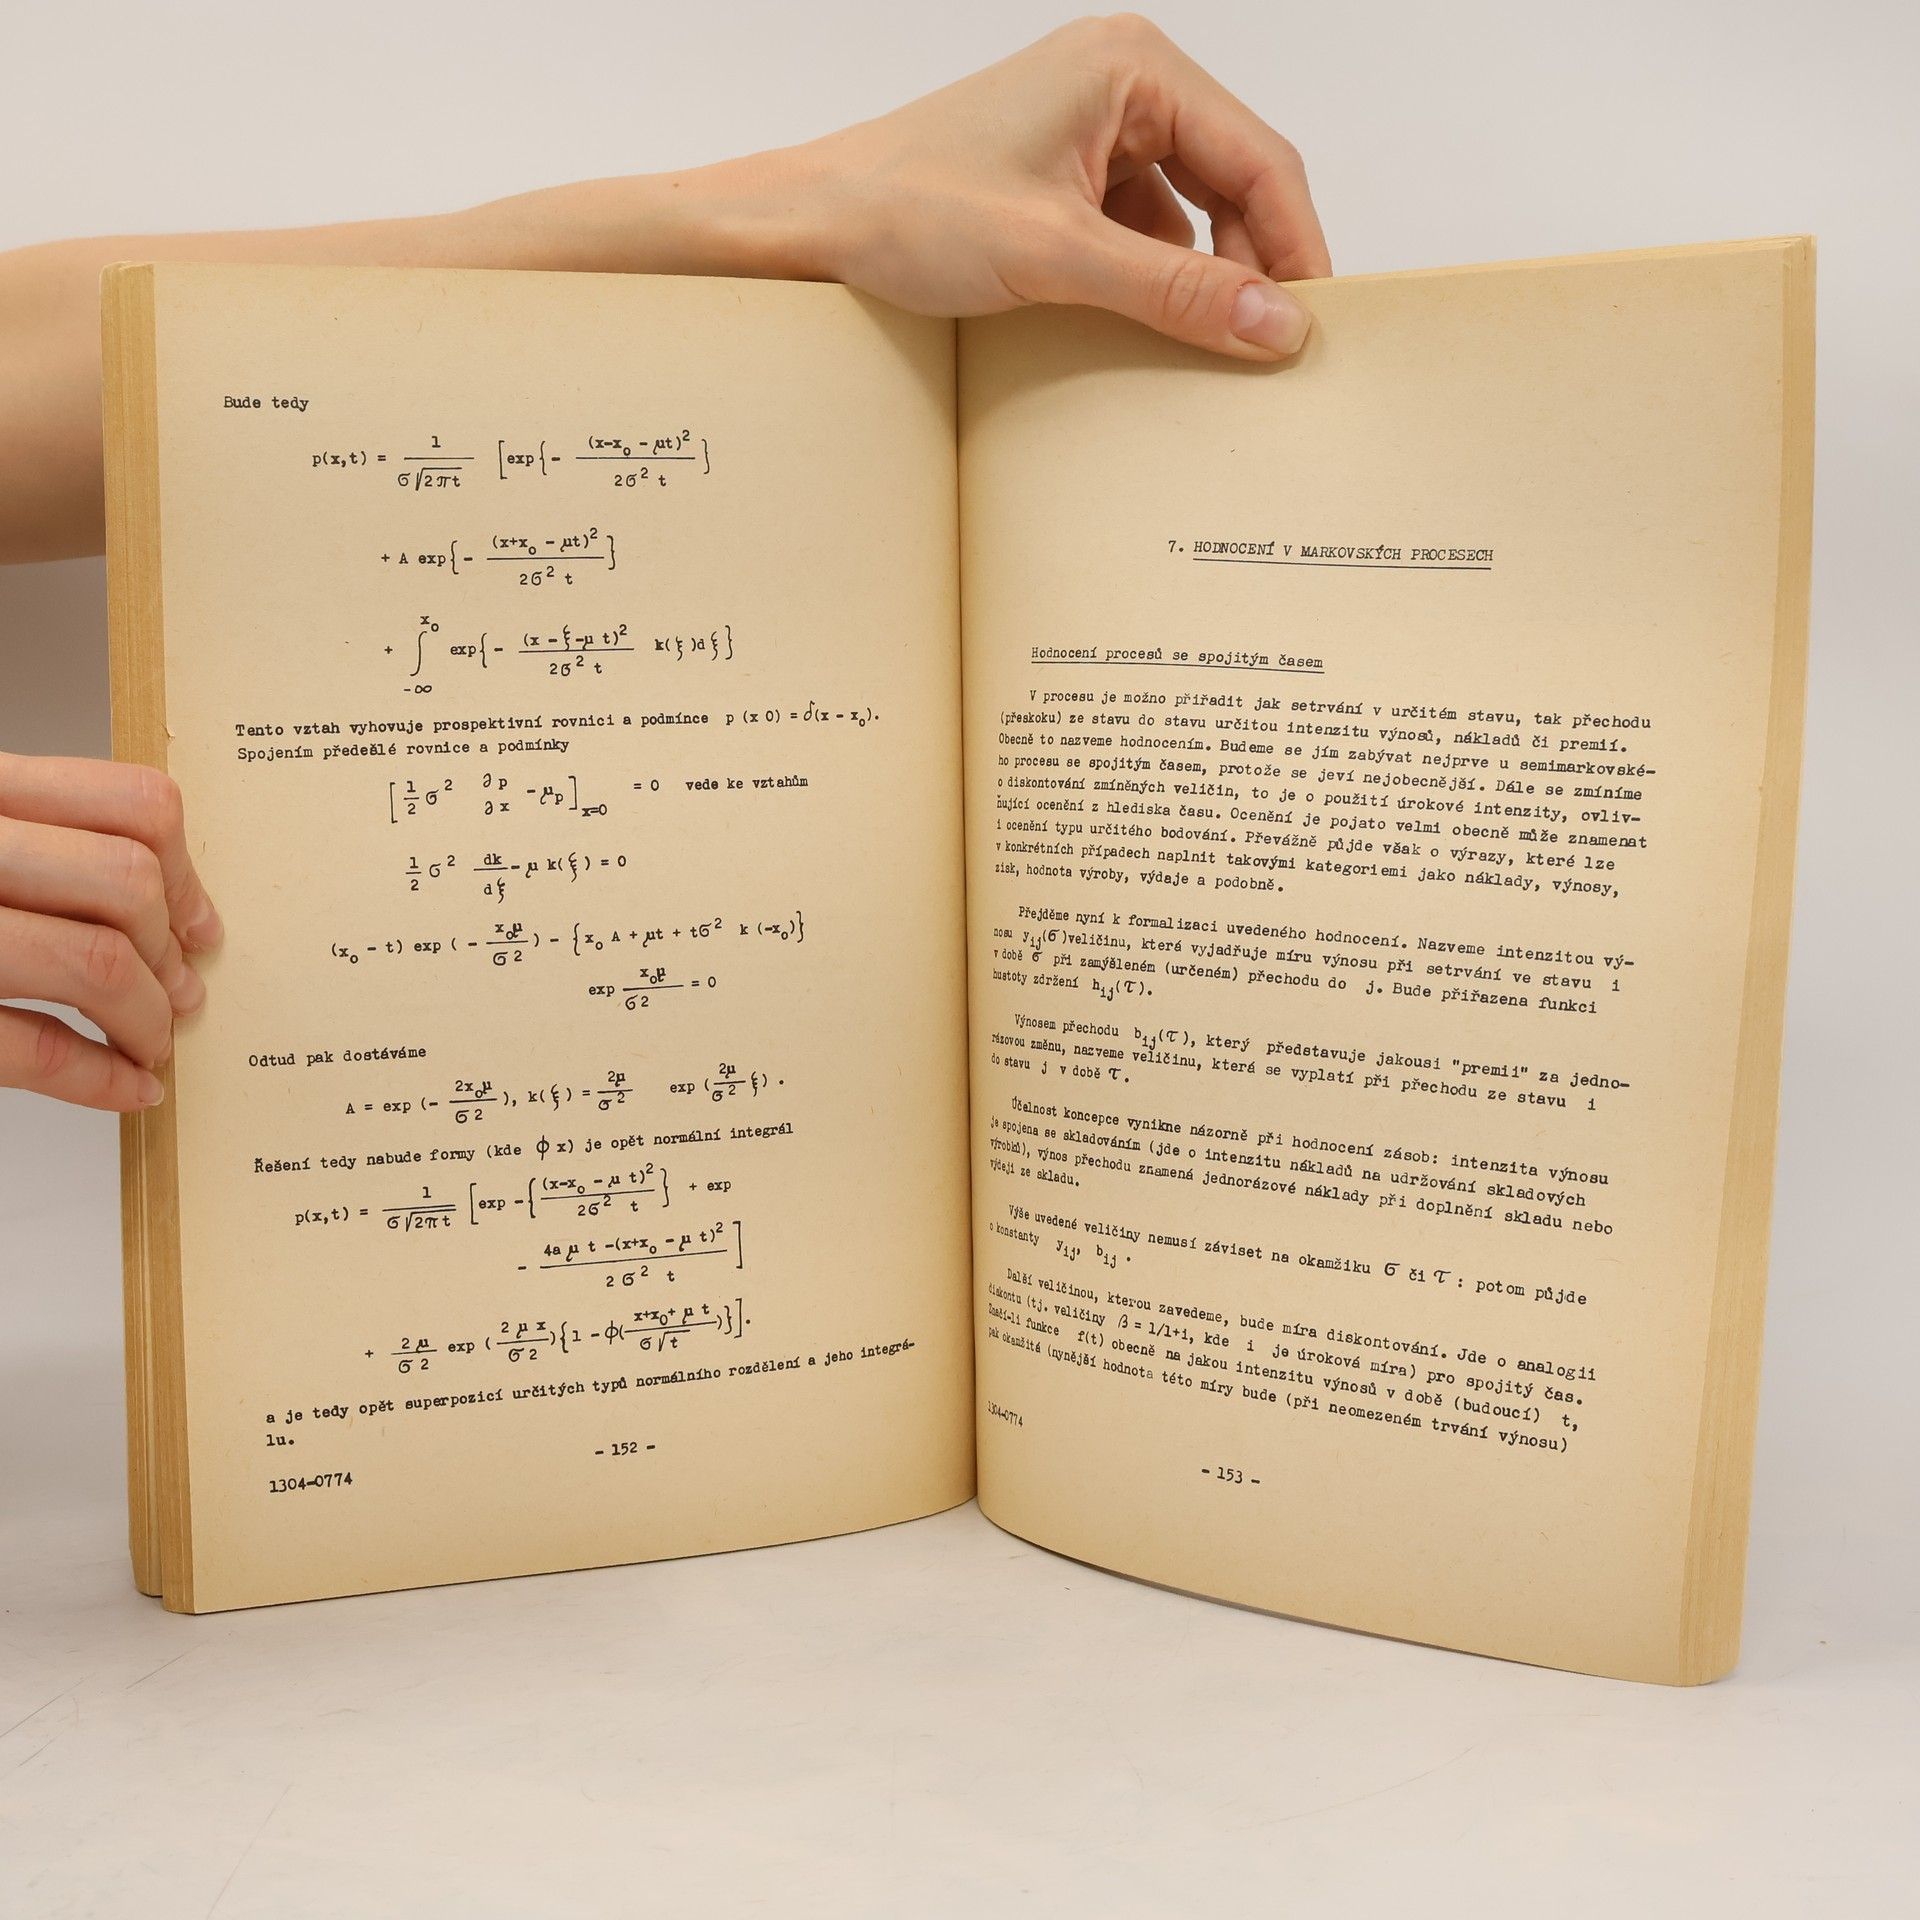 Bude tedy
p(x,t) = 1 / σ√2πt [exp{- (x-x₀ - μt)² / 2σ² t }
+ A exp{- (x+x₀ - μt)² / 2σ² t }
+ ∫ x₀ -∞ exp{- (x - ξ-μ t)² / 2σ² t k(ξ )dξ}
Tento vztah vyhovuje prospektivní rovnici a podmínce p (x 0) = δ(x - x₀).
Spojením předešlé rovnice a podmínky
[ 1/2 σ² ∂p/∂x - μp ]x=0 = 0 vede ke vztahům
1/2 σ² dk/dξ - μ k(ξ) = 0
(x₀ - t) exp ( - x₀μ / σ2 ) - {x₀ A + μt + tσ² k (-x₀)}
exp x₀μ / σ2 = 0
Odtud pak dostáváme
A = exp (- 2x₀μ / σ2 ), k(ξ) = 2μ / σ2 exp ( 2μ / σ2 ξ) .
Řešení tedy nabude formy (kde ϕ x) je opět normální integrál
p(x,t) = 1 / σ√2πt [exp -{ (x-x₀ - μ t)² / 2σ² t } + exp
- 4a μ t -(x+x₀ - μ t)² / 2 σ² t ]
+ 2μ / σ2 exp ( 2 μ x / σ2 ){1 - ϕ( x+x₀+ μ t / σ√t )}].
a je tedy opět superpozicí určitých typů normálního rozdělení a jeho integrá-
lu.
- 152 -
1304-0774
7. HODNOCENÍ V MARKOVSKÝCH PROCESECH
Hodnocení procesů se spojitým časem
V procesu je možno přiřadit jak setrvání v určitém stavu, tak přechodu
(přeskoku) ze stavu do stavu určitou intenzitu výnosů, nákladů či premií.
Obecně to nazveme hodnocením. Budeme se jím zabývat nejprve u semimarkovské-
ho procesu se spojitým časem, protože se jeví nejobecnější. Dále se zmíníme
o diskontování zmíněných veličin, to je o použití úrokové intenzity, ovliv-
ňující ocenění z hlediska času. Ocenění je pojato velmi obecně může znamenat
i ocenění typu určitého bodování. Převážně půjde však o výrazy, které lze
v konkrétních případech naplnit takovými kategoriemi jako náklady, výnosy,
zisk, hodnota výroby, výdaje a podobně.
Přejděme nyní k formalizaci uvedeného hodnocení. Nazveme intenzitou vý-
nosu yij(σ)veličinu, která vyjadřuje míru výnosu při setrvání ve stavu i
v době σ při zamýšleném (určeném) přechodu do j. Bude přiřazena funkci
hustoty zdržení hij(τ).
Výnosem přechodu bij(τ), který představuje jakousi "premii" za jedno-
rázovou změnu, nazveme veličinu, která se vyplatí při přechodu ze stavu i
do stavu j v době τ.
Účelnost koncepce vynikne názorně při hodnocení zásob: intenzita výnosu
je spojena se skladováním (jde o intenzitu nákladů na udržování skladových
výrobků), výnos přechodu znamená jednorázové náklady při doplnění skladu nebo
výdeji ze skladu.
Výše uvedené veličiny nemusí záviset na okamžiku σ či τ : potom půjde
o konstanty yij, bij .
Další veličinou, kterou zavedeme, bude míra diskontování. Jde o analogii
diskontu (tj. veličiny β = 1/1+i, kde i je úroková míra) pro spojitý čas.
Značí-li funkce f(t) obecně na jakou intenzitu výnosů v době (budoucí) t,
pak okamžitá (nynější hodnota této míry bude (při neomezeném trvání výnosu)
1304-0774
- 153 -